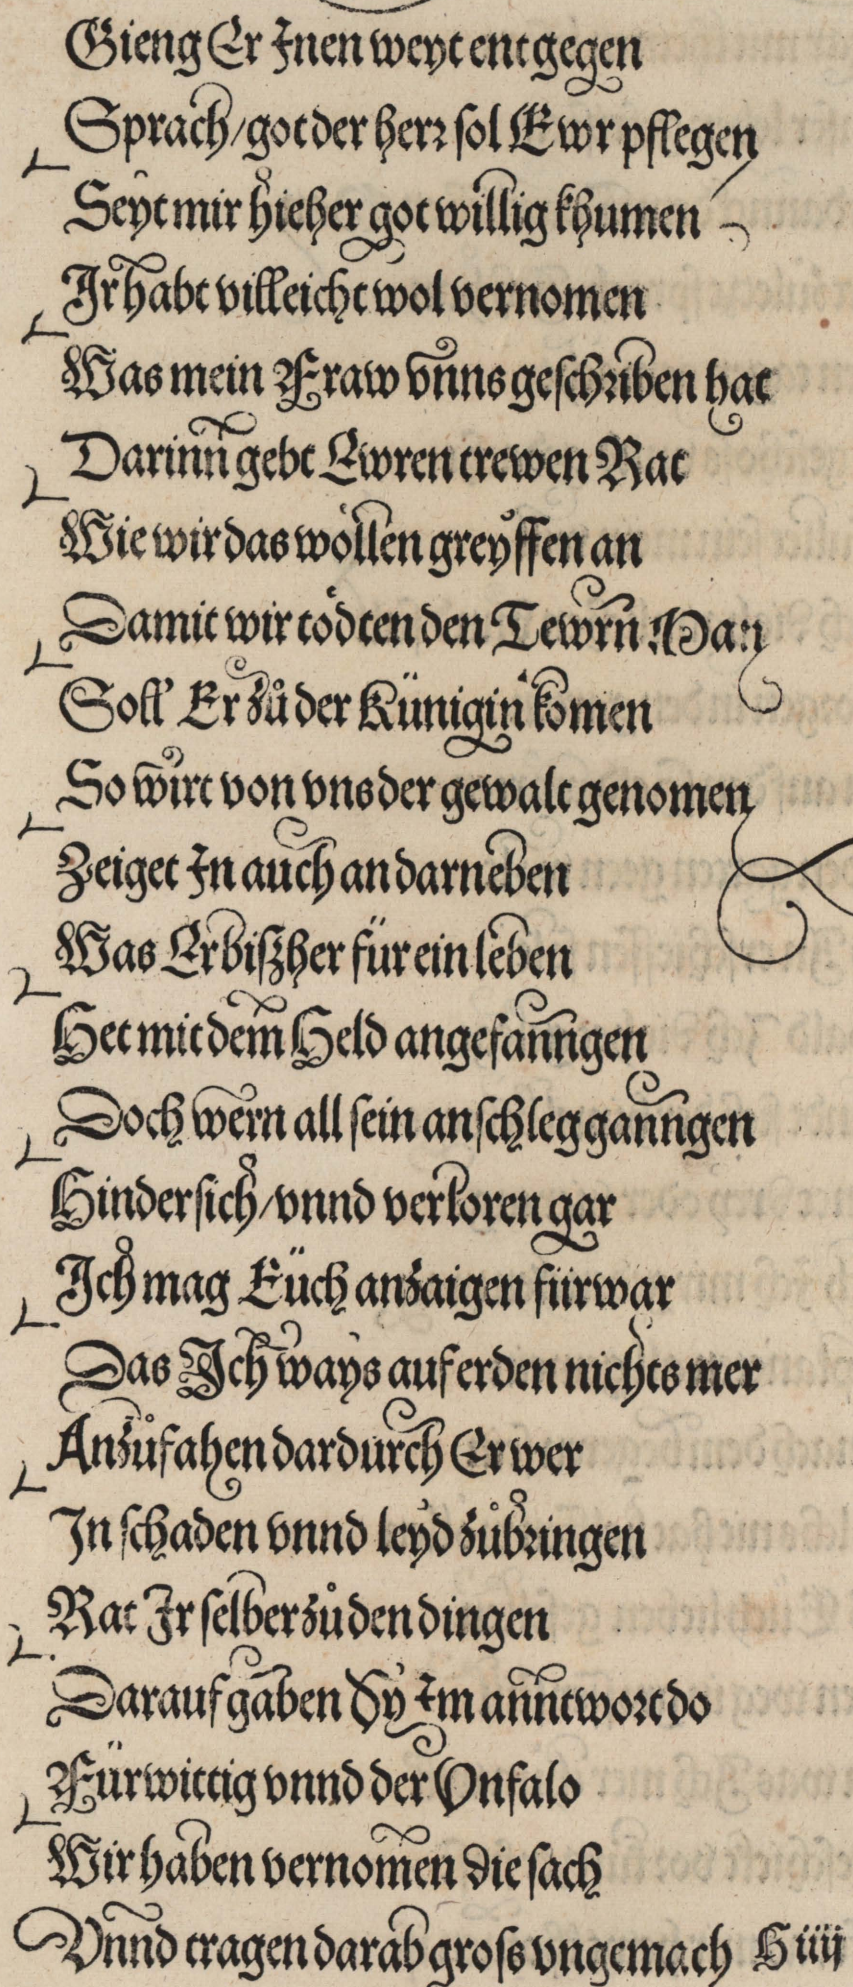 Gieng Er Jnen weyt entgegen
Sprach / got der herr sol Ewr pflegen
Seyt mir hieher got willig khumen
Jr habt villeicht wol vernomen
Was mein Fraw vnns geschriben hat
Darinn gebt Ewren trewen Rat
Wie wir das wöllen greyffen an
Damit wir tödten den Tewrn Man
Soll Er zů der Künigin komen
So wirt von vns der gewalt genomen
Zeiget Jn auch an darneben
Was Er biſzher für ein leben
Het mit dem Held angefanngen
Doch wern all sein anschleg ganngen
Hindersich / vnnd verloren gar
Jch mag Eüch anzaigen fürwar
Das Jch ways auf erden nichts mer
Anzůfahen dardurch Er wer
Jn schaden vnnd leyd zůbringen
Rat Jr selber zů den dingen
Darauf gaben Sy Jm anntwort do
Fürwittig vnnd der Vnfalo
Wir haben vernomen die sach
Vnnd tragen darab gross vngemach H iiij